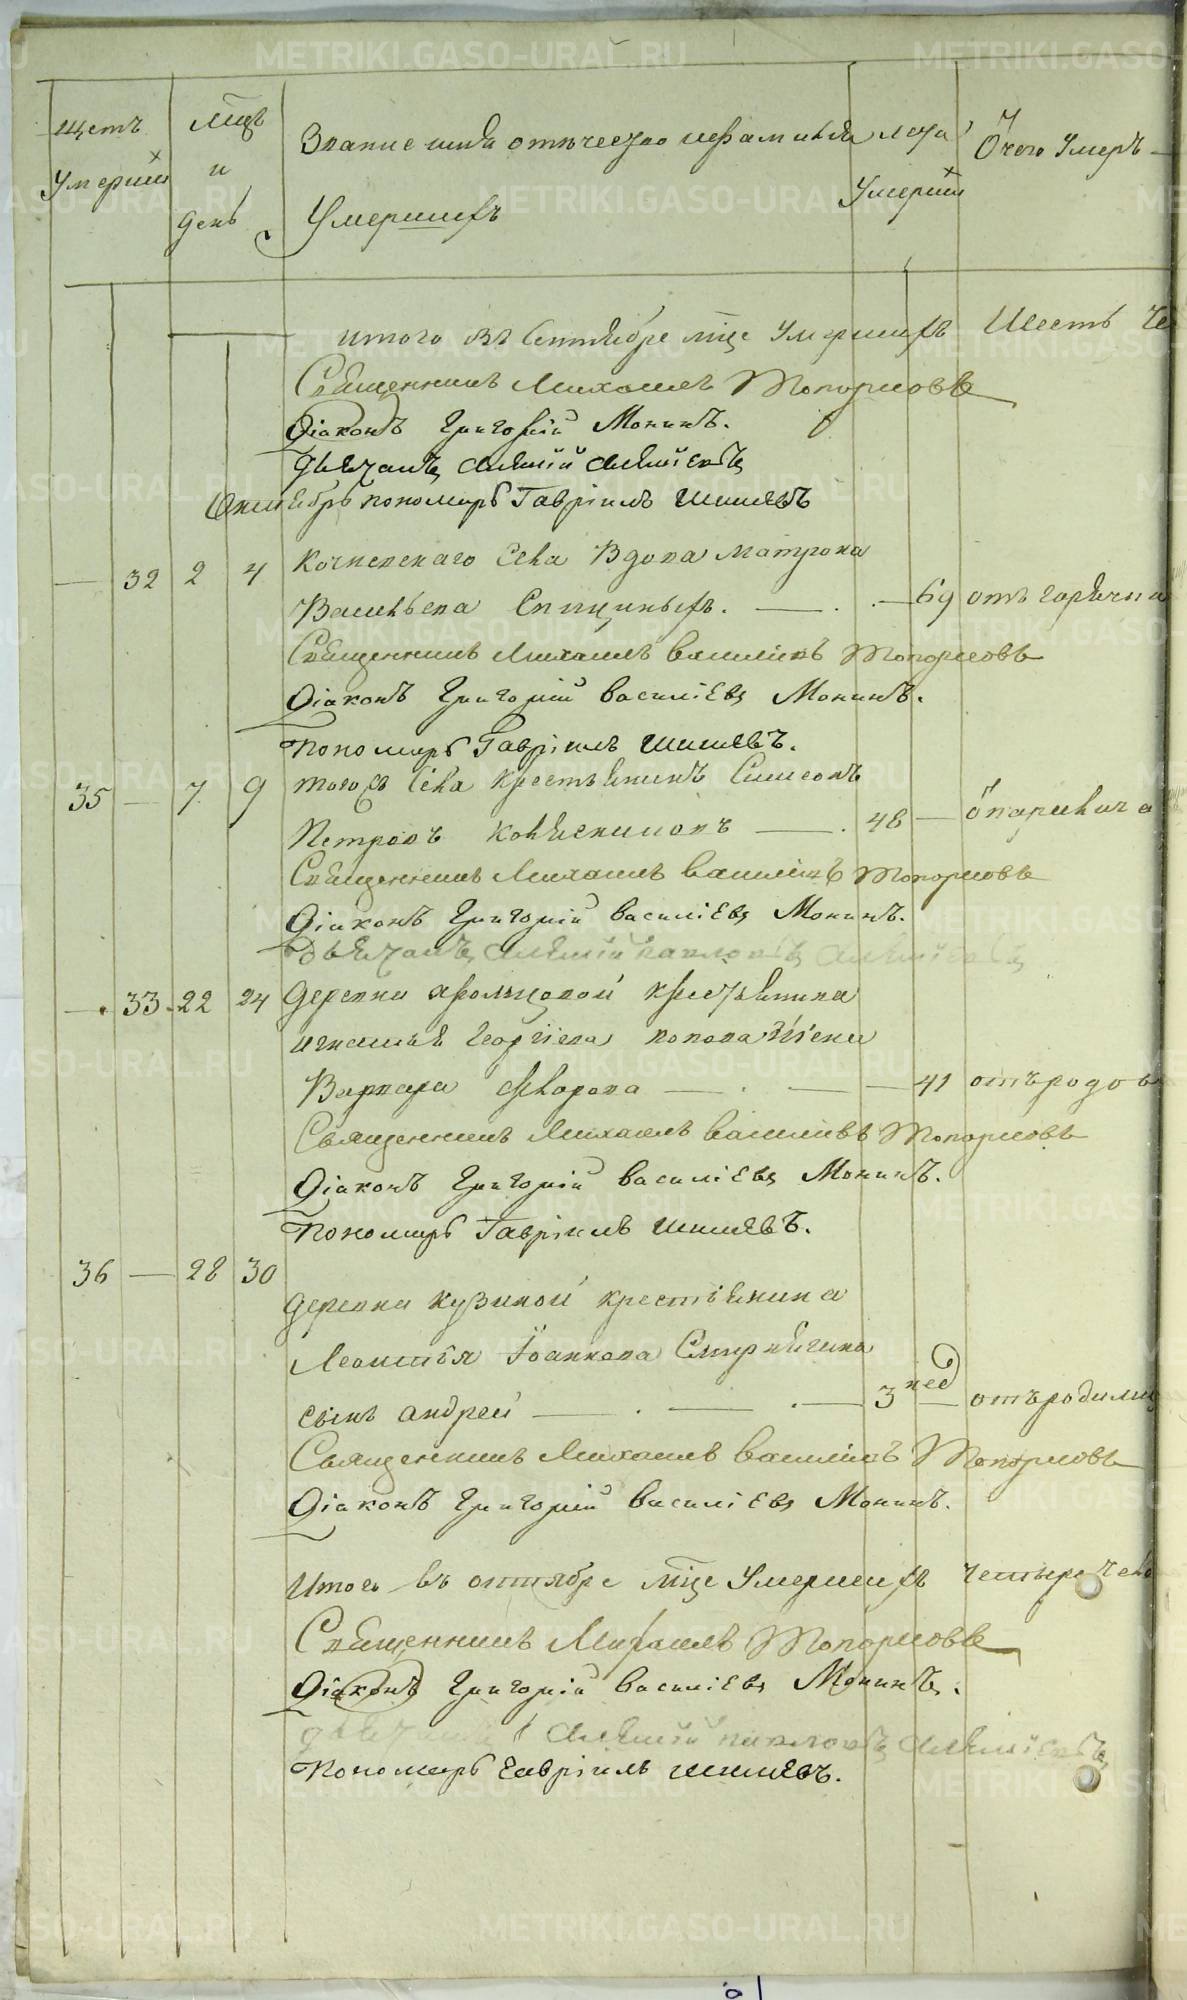 METRIKI.GASO-URAL.RU
щетъ умерших
мцъ и день
Звание имя отчество и фамилия
умерших
лета умерших
От чего умеръ
итого въ Сентябре мце умершихъ Шесть че
Священникъ Михаилъ Топорковъ
Діаконъ Григорій Монинъ.
Дьячокъ
Октябрь пономарь Гавріилъ Шишевъ
32 2 4 Кочневскаго села вдова Матрона
Васильева Спицыныхъ. 69 отъ горячки
Священникъ Михаилъ Василіевъ Топорковъ
Діаконъ Григорій Василіевъ Монинъ.
Пономарь Гавріилъ Шишевъ.
35 7 9 того села крестьянинъ Симеонъ
Петровъ 48 от паралича
Священникъ Михаилъ Василіевъ Топорковъ
Діаконъ Григорій Василіевъ Монинъ.
Дьячокъ
33 22 24 деревни крестьянина
Игнатья Георгіева Попова жена
Варвара 41 отъ родов
Священникъ Михаилъ Василіевъ Топорковъ
Діаконъ Григорій Василіевъ Монинъ.
Пономарь Гавріилъ Шишевъ.
36 28 30
деревни Кузиной крестьянина
Леонтія Іоаннова
сынъ Андрей 3 нед отъ родимц
Священникъ Михаилъ Василіевъ Топорковъ
Діаконъ Григорій Василіевъ Монинъ.
Итого въ октябре мце умершихъ четыре чело
Священникъ Михаилъ Топорковъ
Діаконъ Григорій Василіевъ Монинъ.
Пономарь Гавріилъ Шишевъ.